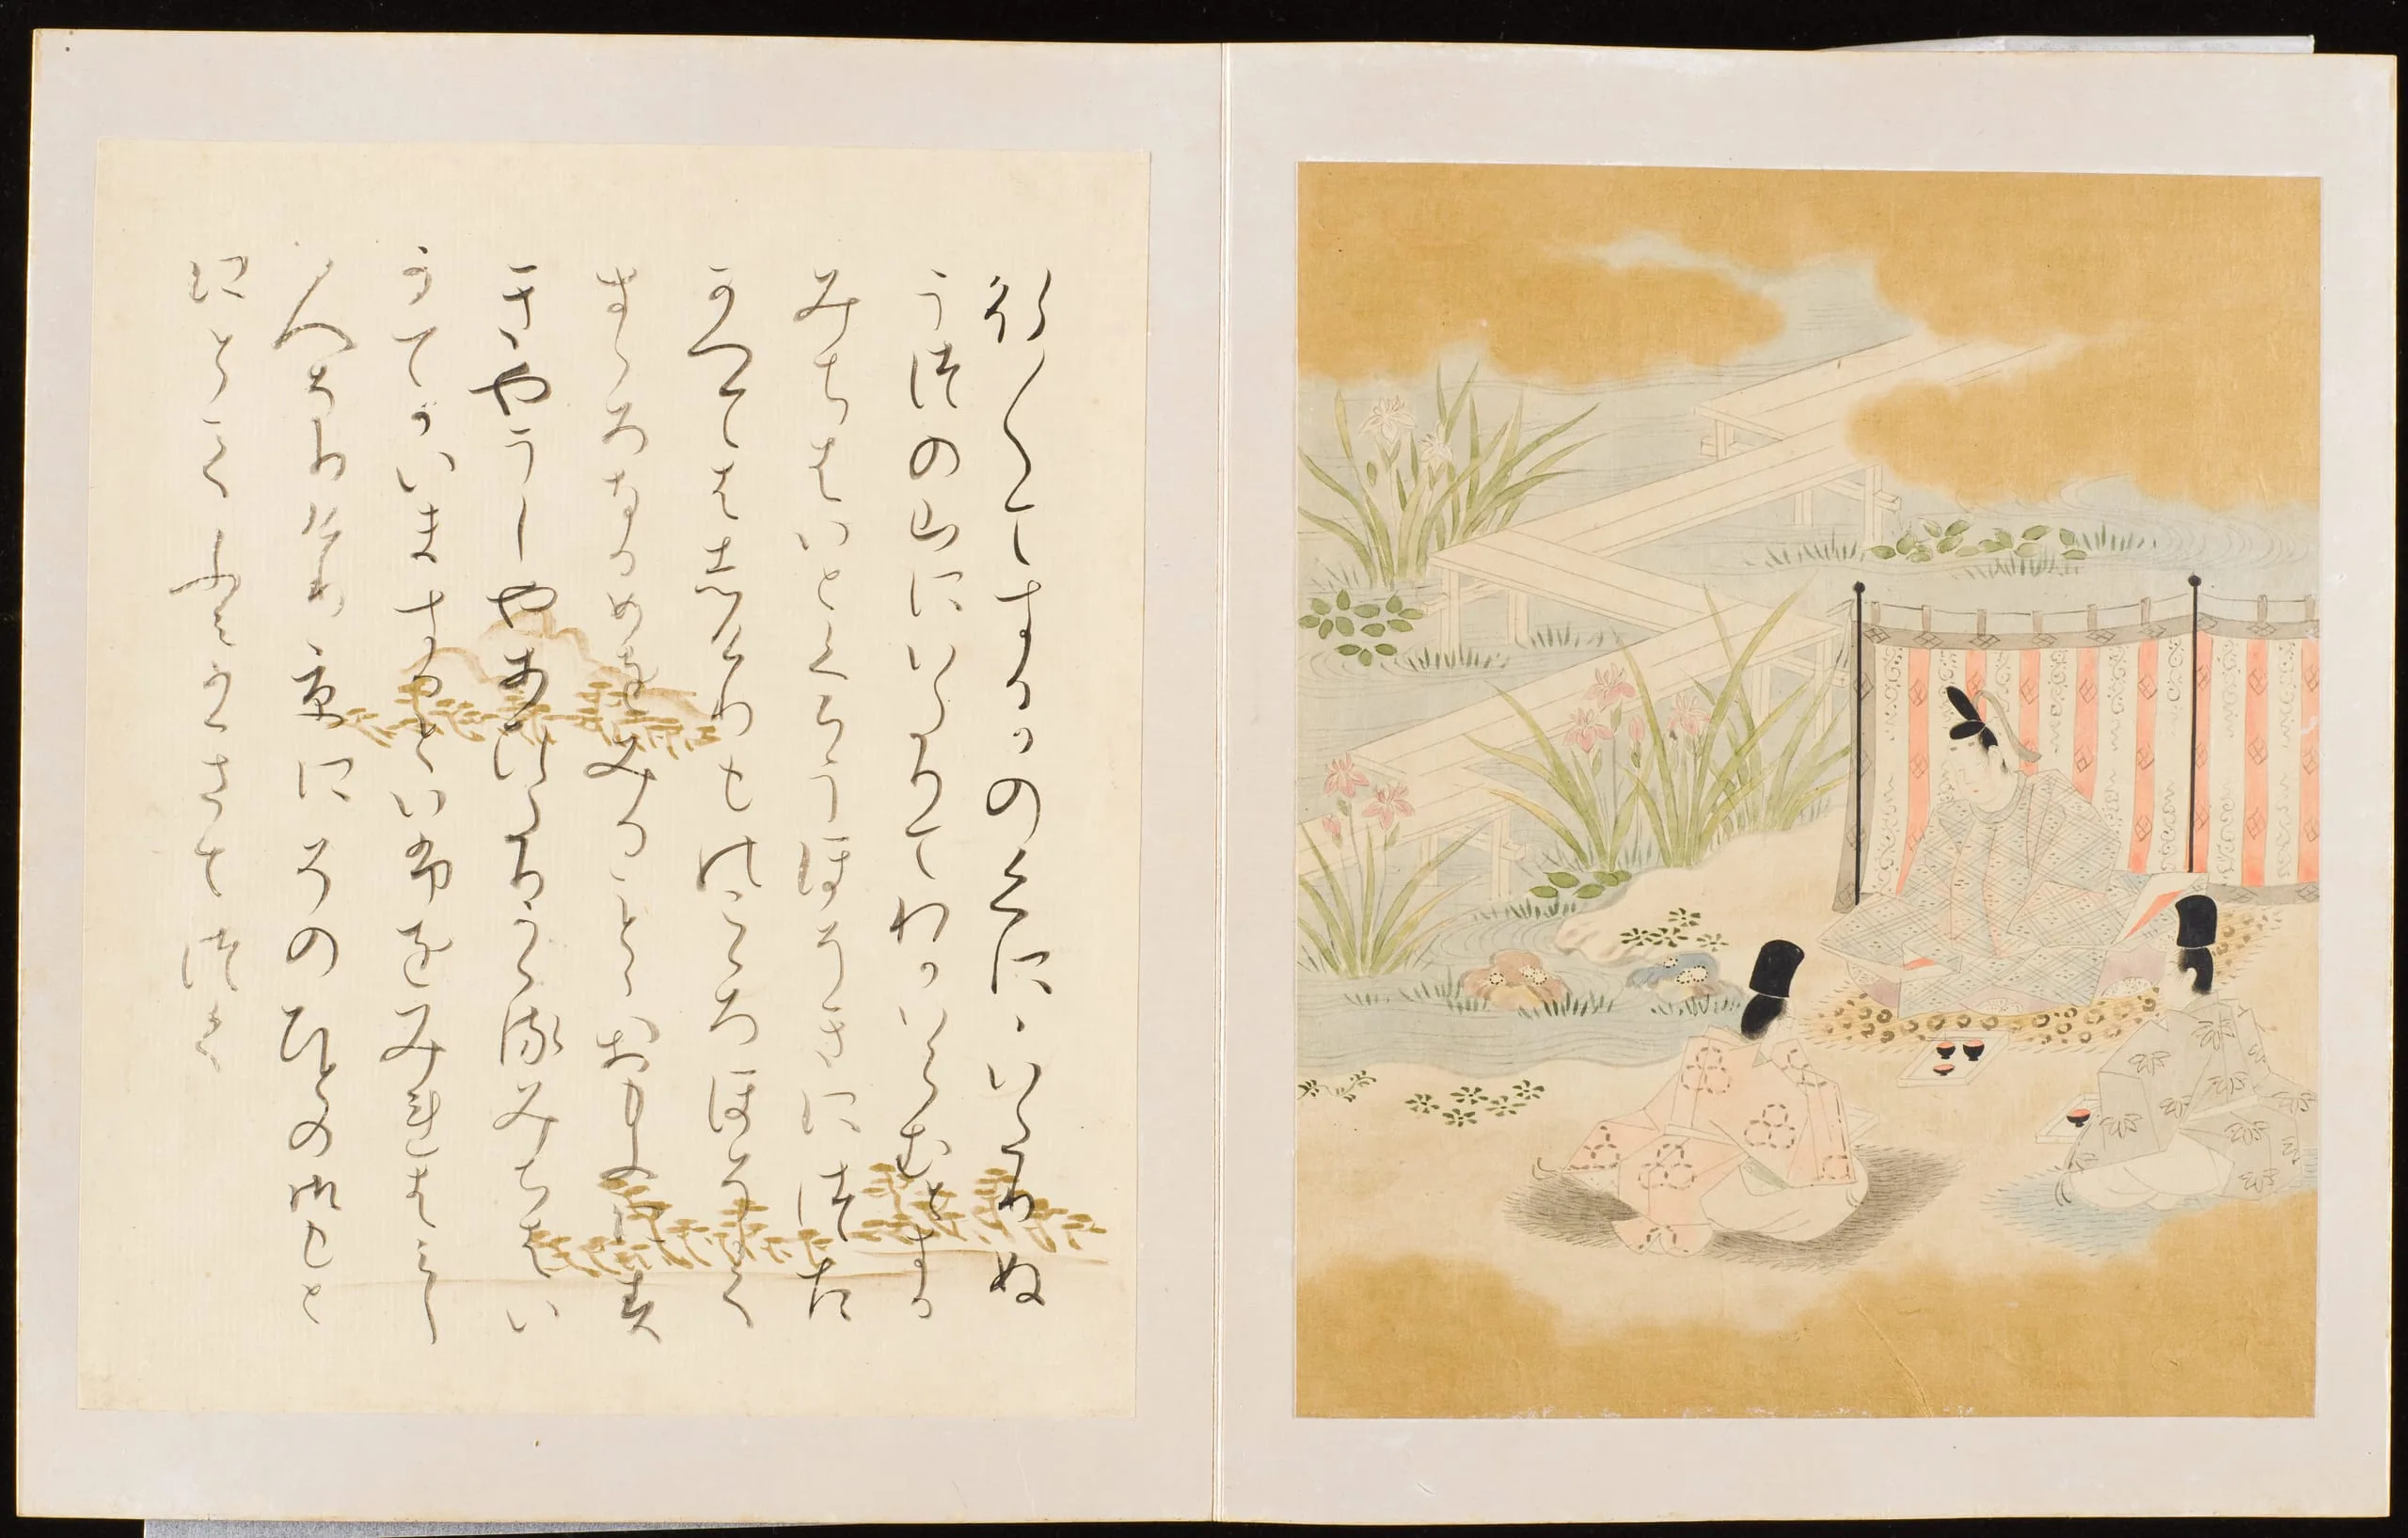 ゆき〱てするかのくにゝいたりぬ
うつの山にいたりてわかいらんとする
みちはいとくらうほそきにつた
かへてはしけりもの心ほそく
すゝろなるめをみることゝおもふにす
きやうさあひたりかゝるみちはい
かてかいまするといふをみれはみし
人なりけり京にその人の御もと
にとてふみかきてつく